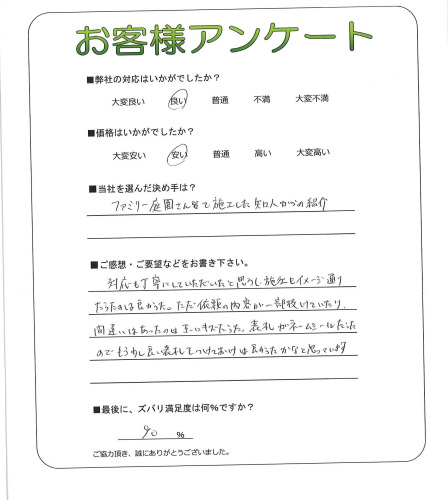 お客様アンケート
■弊社の対応はいかがでしたか?
大変良い 良い 普通 不満 大変不満
■価格はいかがでしたか?
大変安い 安い 普通 高い 大変高い
■当社を選んだ決め手は?
ファミリー庭園さんで施工した知人からの紹介
■ご感想・ご要望などをお書き下さい。
対応も丁寧にしていただいたと思うし、施工もイメージ通り
だったのは良かった。ただ依頼の内容が一部抜けていたり、
間違いはあったのは
表札がネームシールだった
のでもう少し良い表札をつけておけば良かったかなと思っています
■最後に、ズバリ満足度は何%ですか?
90 %
ご協力頂き、誠にありがとうございました。